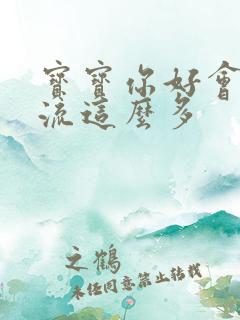 寶寶你好會
流這麼多
之鶴
未經同意禁止轉載